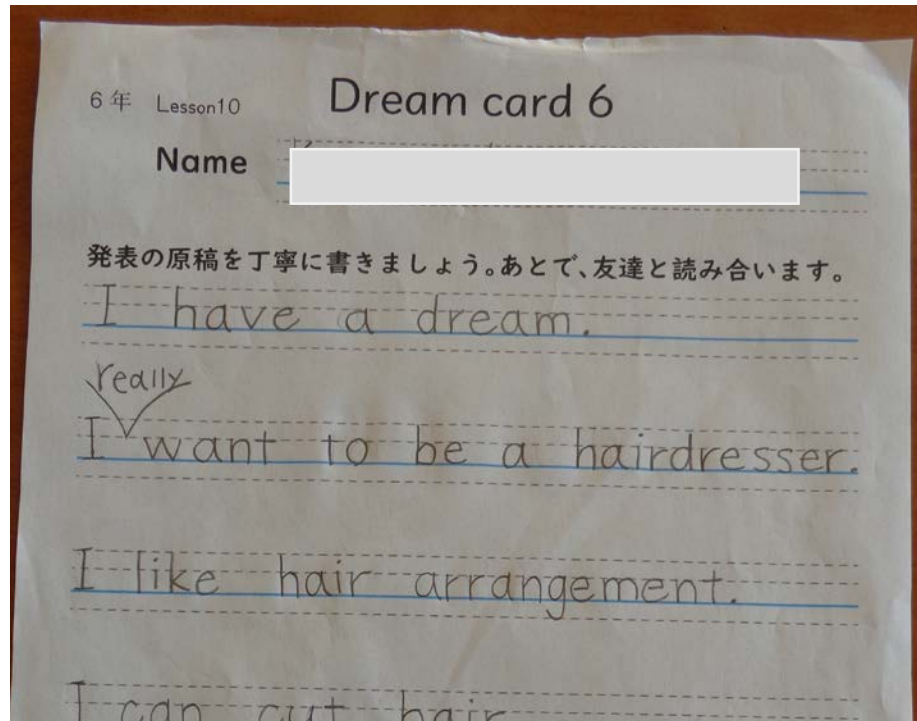 6年 Lesson10 Dream card 6
Name
発表の原稿を丁寧に書きましょう。あとで、友達と読み合います。
I have a dream.
really
I want to be a hairdresser.
I like hair arrangement.
I can cut hair